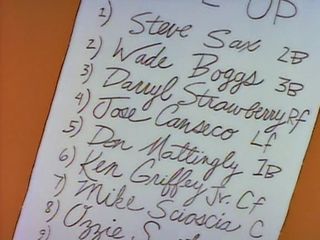 UP
1) Steve Sax 2B
2) Wade Boggs 3B
3) Darryl Strawberry Rf
4) Jose Canseco Lf
5) Don Mattingly 1B
6) Ken Griffey Jr. Cf
7) Mike Scioscia C
8) Ozzie
9)